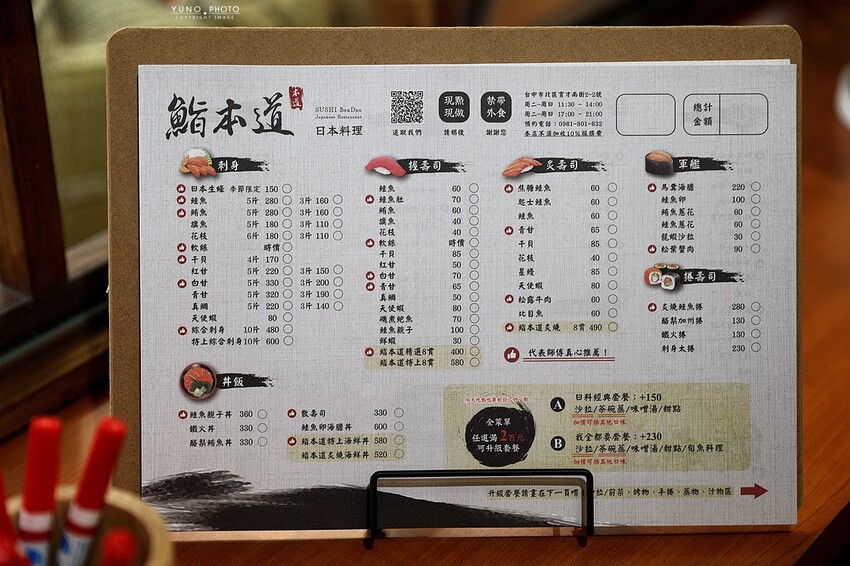 YUNO PHOTO
COPYRIGHT IMAGE
鮨本道
本道
SUSHI BenDao
Japanese Restaurant
日本料理
追蹤我們
現點
現做
請稍後
禁帶
外食
謝謝您
台中市北區育才南街2-2號
周二~周日 11:30 - 14:00
周二~周日 17:00 - 21:00
預約電話:0981-801-832
本店不須加收10%服務費
總計
金額
刺身
日本生蠔 季節限定 150
鮭魚 5片 280 3片 160
鮪魚 5片 280 3片 160
旗魚 5片 180 3片 110
花枝 6片 180 3片 110
軟絲 時價
干貝 4片 170
紅甘 5片 220 3片 150
白甘 5片 330 3片 200
青甘 5片 320 3片 190
真鯛 5片 220 3片 140
天使蝦 80
綜合刺身 10片 480
特上綜合刺身 10片 600
握壽司
鮭魚 60
鮭魚肚 70
鮪魚 60
旗魚 40
花枝 40
軟絲 時價
干貝 85
紅甘 50
白甘 70
青甘 65
真鯛 50
天使蝦 80
磯煮鮑魚 70
鮭魚親子 100
鮮蝦 30
鮨本道精選8貫 400
鮨本道特上8貫 580
炙壽司
焦糖鮭魚 60
起士鮭魚 60
鮭魚 60
青甘 65
干貝 85
花枝 40
星鰻 85
天使蝦 80
松露牛肉 60
比目魚 60
鮨本道炙燒 8貫 490
代表師傅真心推薦!
軍艦
馬糞海膽 220
鮭魚卵 100
鮪魚蔥花 60
鮭魚蔥花 60
龍蝦沙拉 30
松葉蟹肉 90
捲壽司
炙燒鮭魚捲 280
酪梨加州捲 130
鐵火捲 130
刺身太捲 230
丼飯
鮭魚親子丼 360
鐵火丼 330
酪梨鮪魚丼 330
散壽司 330
鮭魚卵海膽丼 600
鮨本道特上海鮮丼 580
鮨本道炙燒海鮮丼 520
全菜單
任選滿2百元
可升級套餐
A 日料經典套餐:+150
沙拉/茶碗蒸/味噌湯/甜點
加價可換其他口味
B 我全都要套餐:+230
沙拉/茶碗蒸/味噌湯/甜點/旬魚料理
加價可換其他口味
升級套餐請畫在下一頁唷 沙拉/前菜、烤物、手捲、蒸物、汁物區